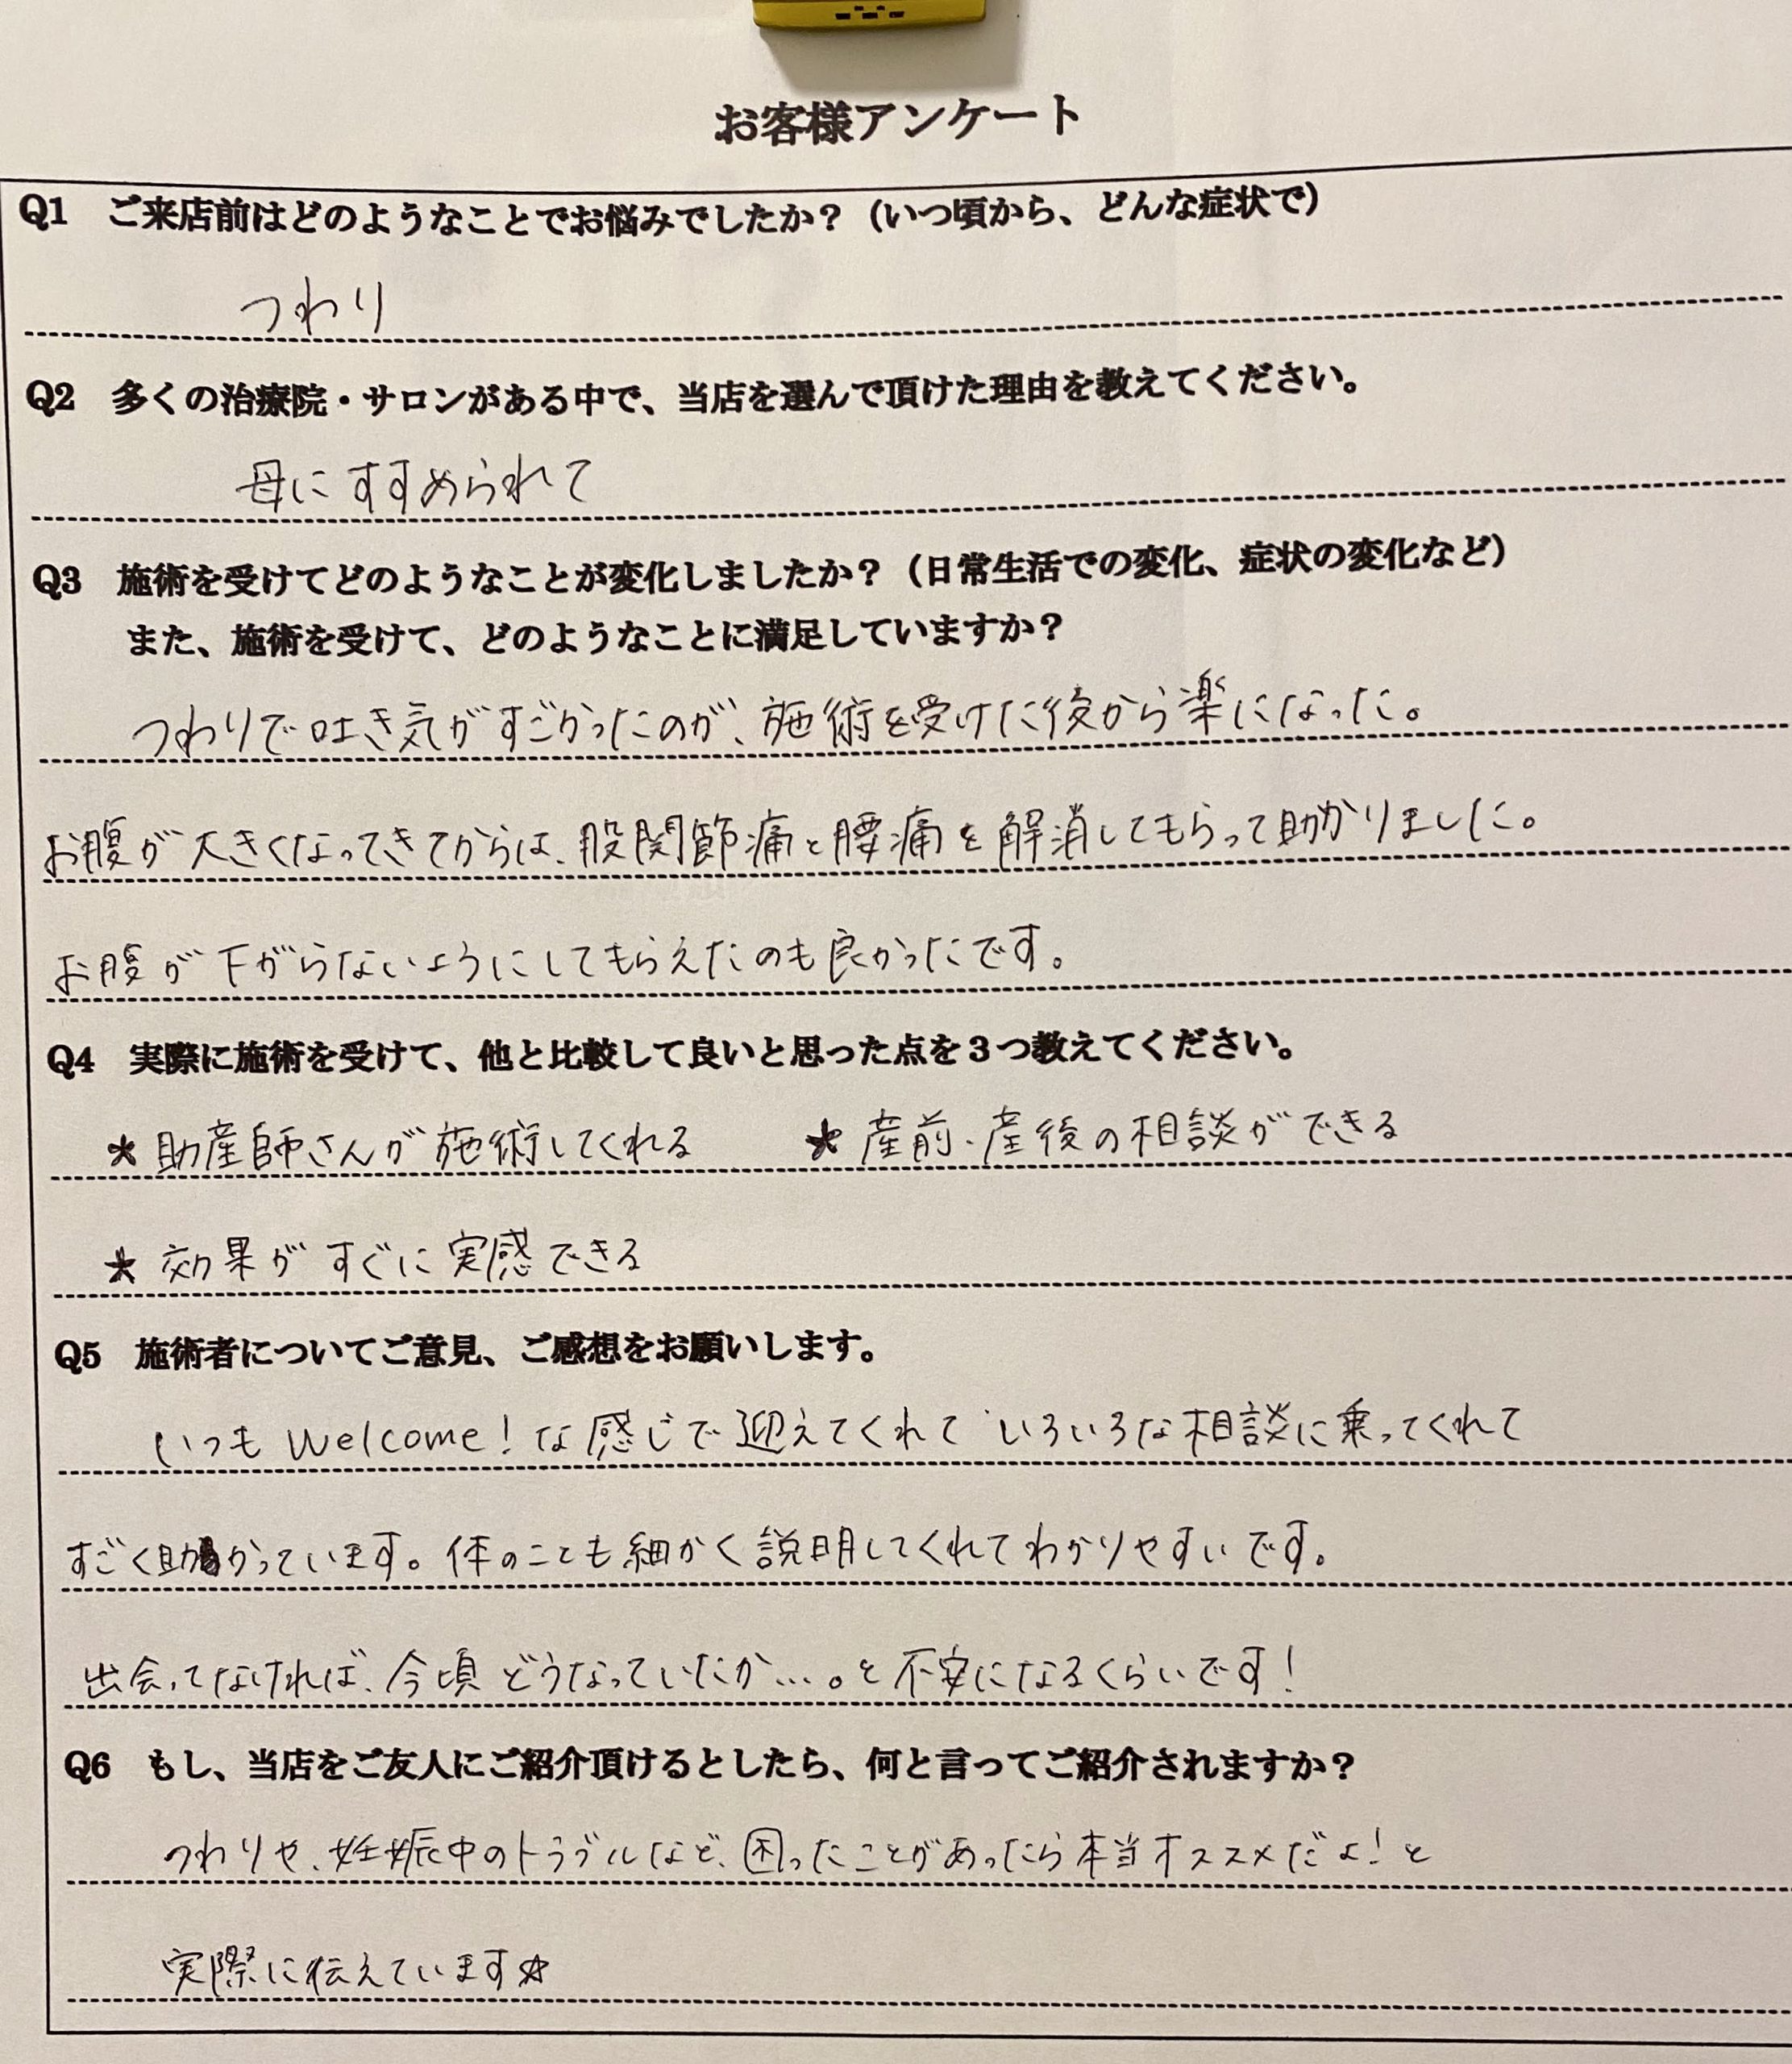 お客様アンケート
Q1 ご来店前はどのようなことでお悩みでしたか？（いつ頃から、どんな症状で）
つわり
Q2 多くの治療院・サロンがある中で、当店を選んで頂けた理由を教えてください。
母にすすめられて
Q3 施術を受けてどのようなことが変化しましたか？（日常生活での変化、症状の変化など）
また、施術を受けて、どのようなことに満足していますか？
つわりで吐き気がすごかったのが、施術を受けた後から楽になった。
お腹が大きくなってきてからは、股関節痛と腰痛を解消してもらって助かりました。
お腹が下がらないようにしてもらえたのも良かったです。
Q4 実際に施術を受けて、他と比較して良いと思った点を３つ教えてください。
★助産師さんが施術してくれる ★産前・産後の相談ができる
★効果がすぐに実感できる
Q5 施術者についてご意見、ご感想をお願いします。
いつもWelcome！な感じで迎えてくれていろいろな相談に乗ってくれて
すごく助かっています。体のことも細かく説明してくれてわかりやすいです。
出会ってなければ、今頃どうなっていたか…。と不安になるくらいです！
Q6 もし、当店をご友人にご紹介頂けるとしたら、何と言ってご紹介されますか？
つわりや、妊娠中のトラブルなど、困ったことがあったら本当オススメだよ！と
実際に伝えています☆